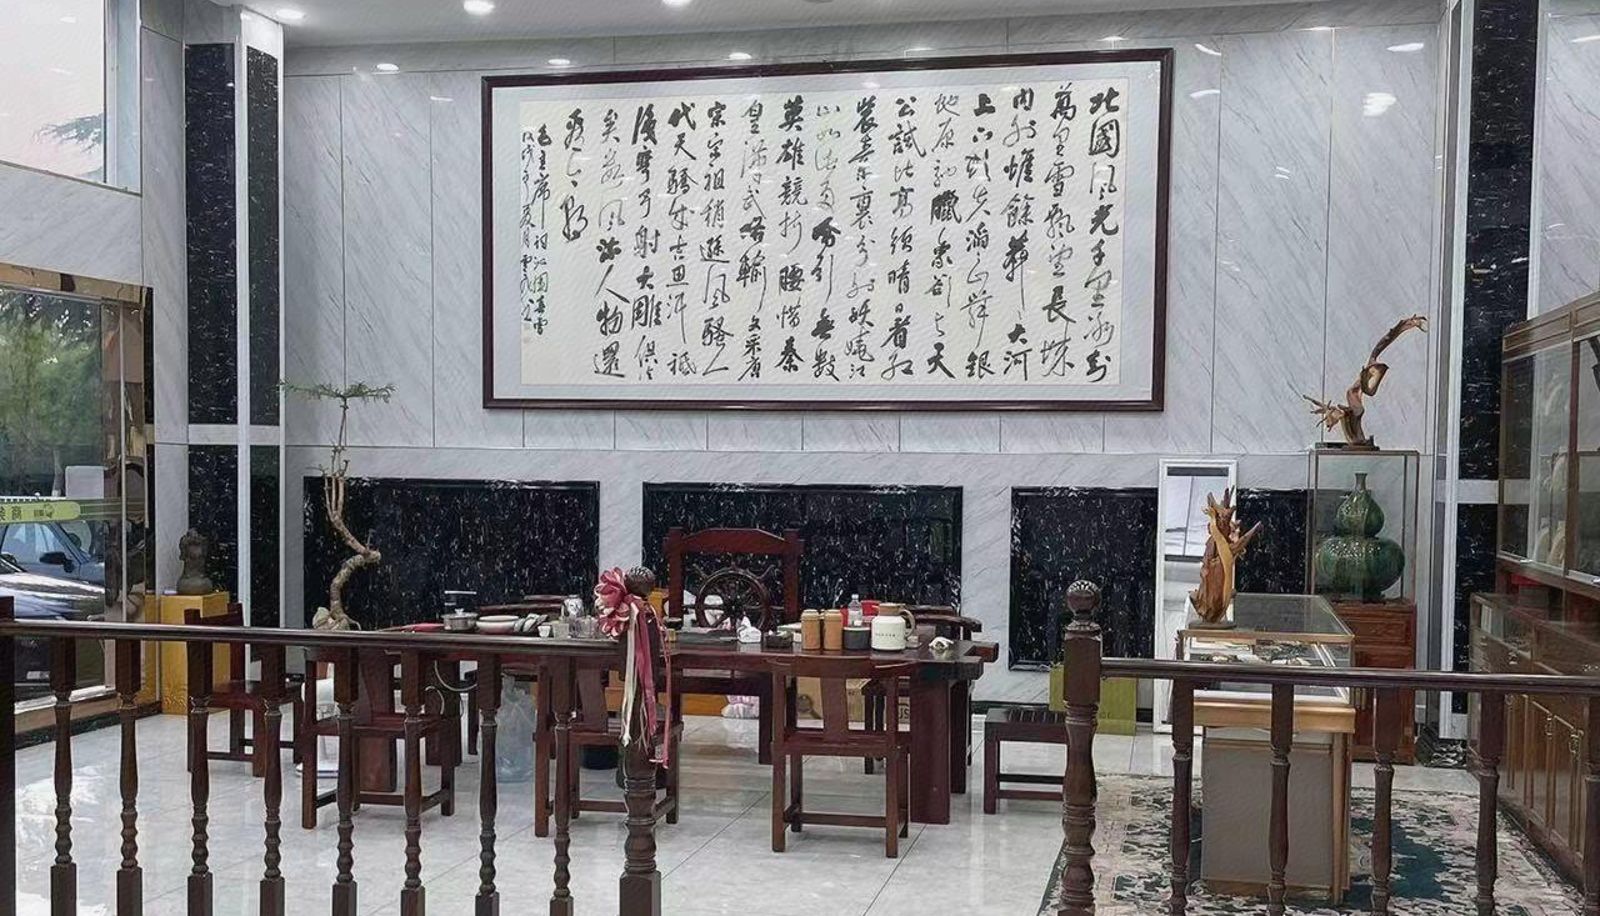 北國風光千里冰封
萬里雪飄望長城
内外惟餘莽莽大河
上下頓失滔滔山舞銀
蛇原馳臘象欲与天
公試比高須晴日看紅
裝素裹分外妖嬈江
山如此多嬌引無數
英雄競折腰惜秦
皇漢武略輸文采唐
宗宋祖稍遜風騷一
代天驕成吉思汗祗
識彎弓射大雕俱往
矣數風流人物還
看今朝
毛主席詞沁園春雪
戊戌年夏月